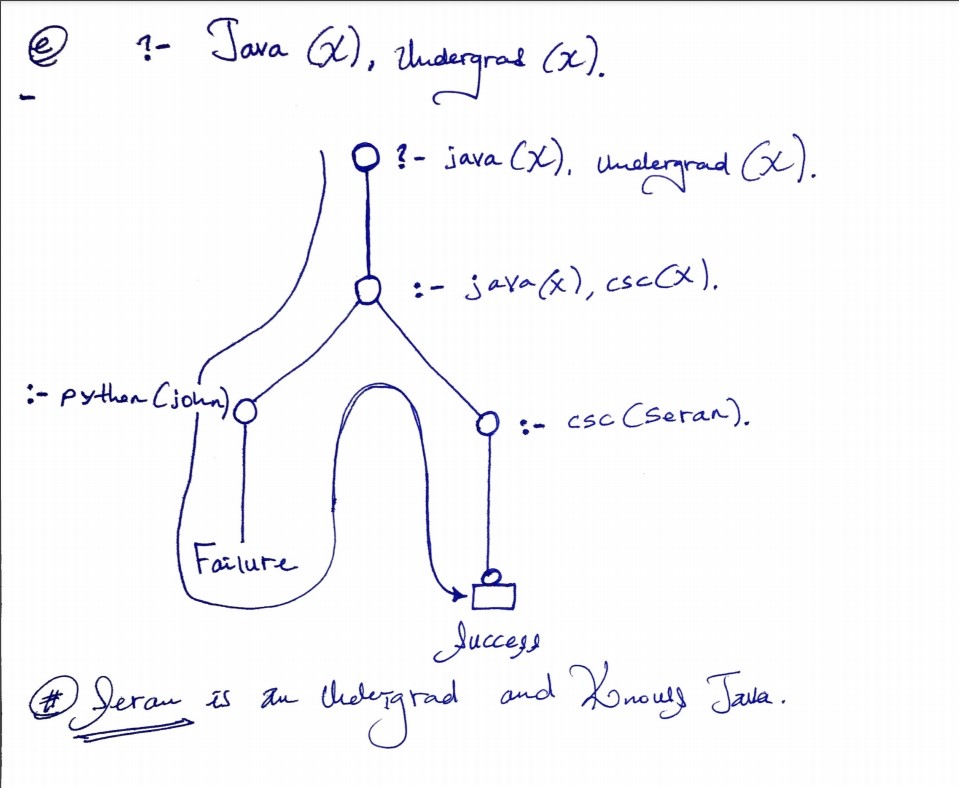 e ?- Java (X), Undergrad (X).
?- java (X), undergrad (X).
:- java(X), csc(X).
:- python (john)
:- csc (Seran).
Failure
Success
# Seran is an Undergrad and Knows Java.